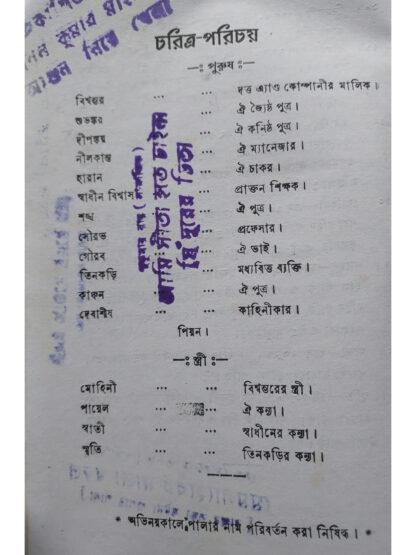 কুমার
আগুন নিয়ে খেলা
চরিত্র-পরিচয়
—ঃ পুরুষ ঃ—
বিশ্বম্ভর ... ... দত্ত এ্যাণ্ড কোম্পানীর মালিক।
শুভঙ্কর ... ঐ জ্যৈষ্ঠ পুত্র।
দীপঙ্কর ... ঐ কনিষ্ঠ পুত্র।
নীলকান্ত ... ঐ ম্যানেজার।
হারান ... ঐ চাকর।
স্বাধীন বিশ্বাস ... প্রাক্তন শিক্ষক।
শঙ্খ ... ঐ পুত্র।
সৌরভ ... প্রফেসার।
গৌরব ... ঐ ভাই।
তিনকড়ি ... মধ্যবিত্ত ব্যক্তি।
কাঞ্চন ... ঐ পুত্র।
দেবাশীষ ... কাহিনীকার।
পিয়ন।
আমি সীতা হতে চাইনি
সিঁদুরের চিতা
—ঃ স্ত্রী ঃ—
মোহিনী ... ... বিশ্বম্ভরের স্ত্রী।
পায়েল ... ... ঐ কন্যা।
স্বাতী ... ... স্বাধীনের কন্যা।
স্মৃতি ... ... তিনকড়ির কন্যা।
* অভিনয়কালে পালার নাম পরিবর্তন করা নিষিদ্ধ। *